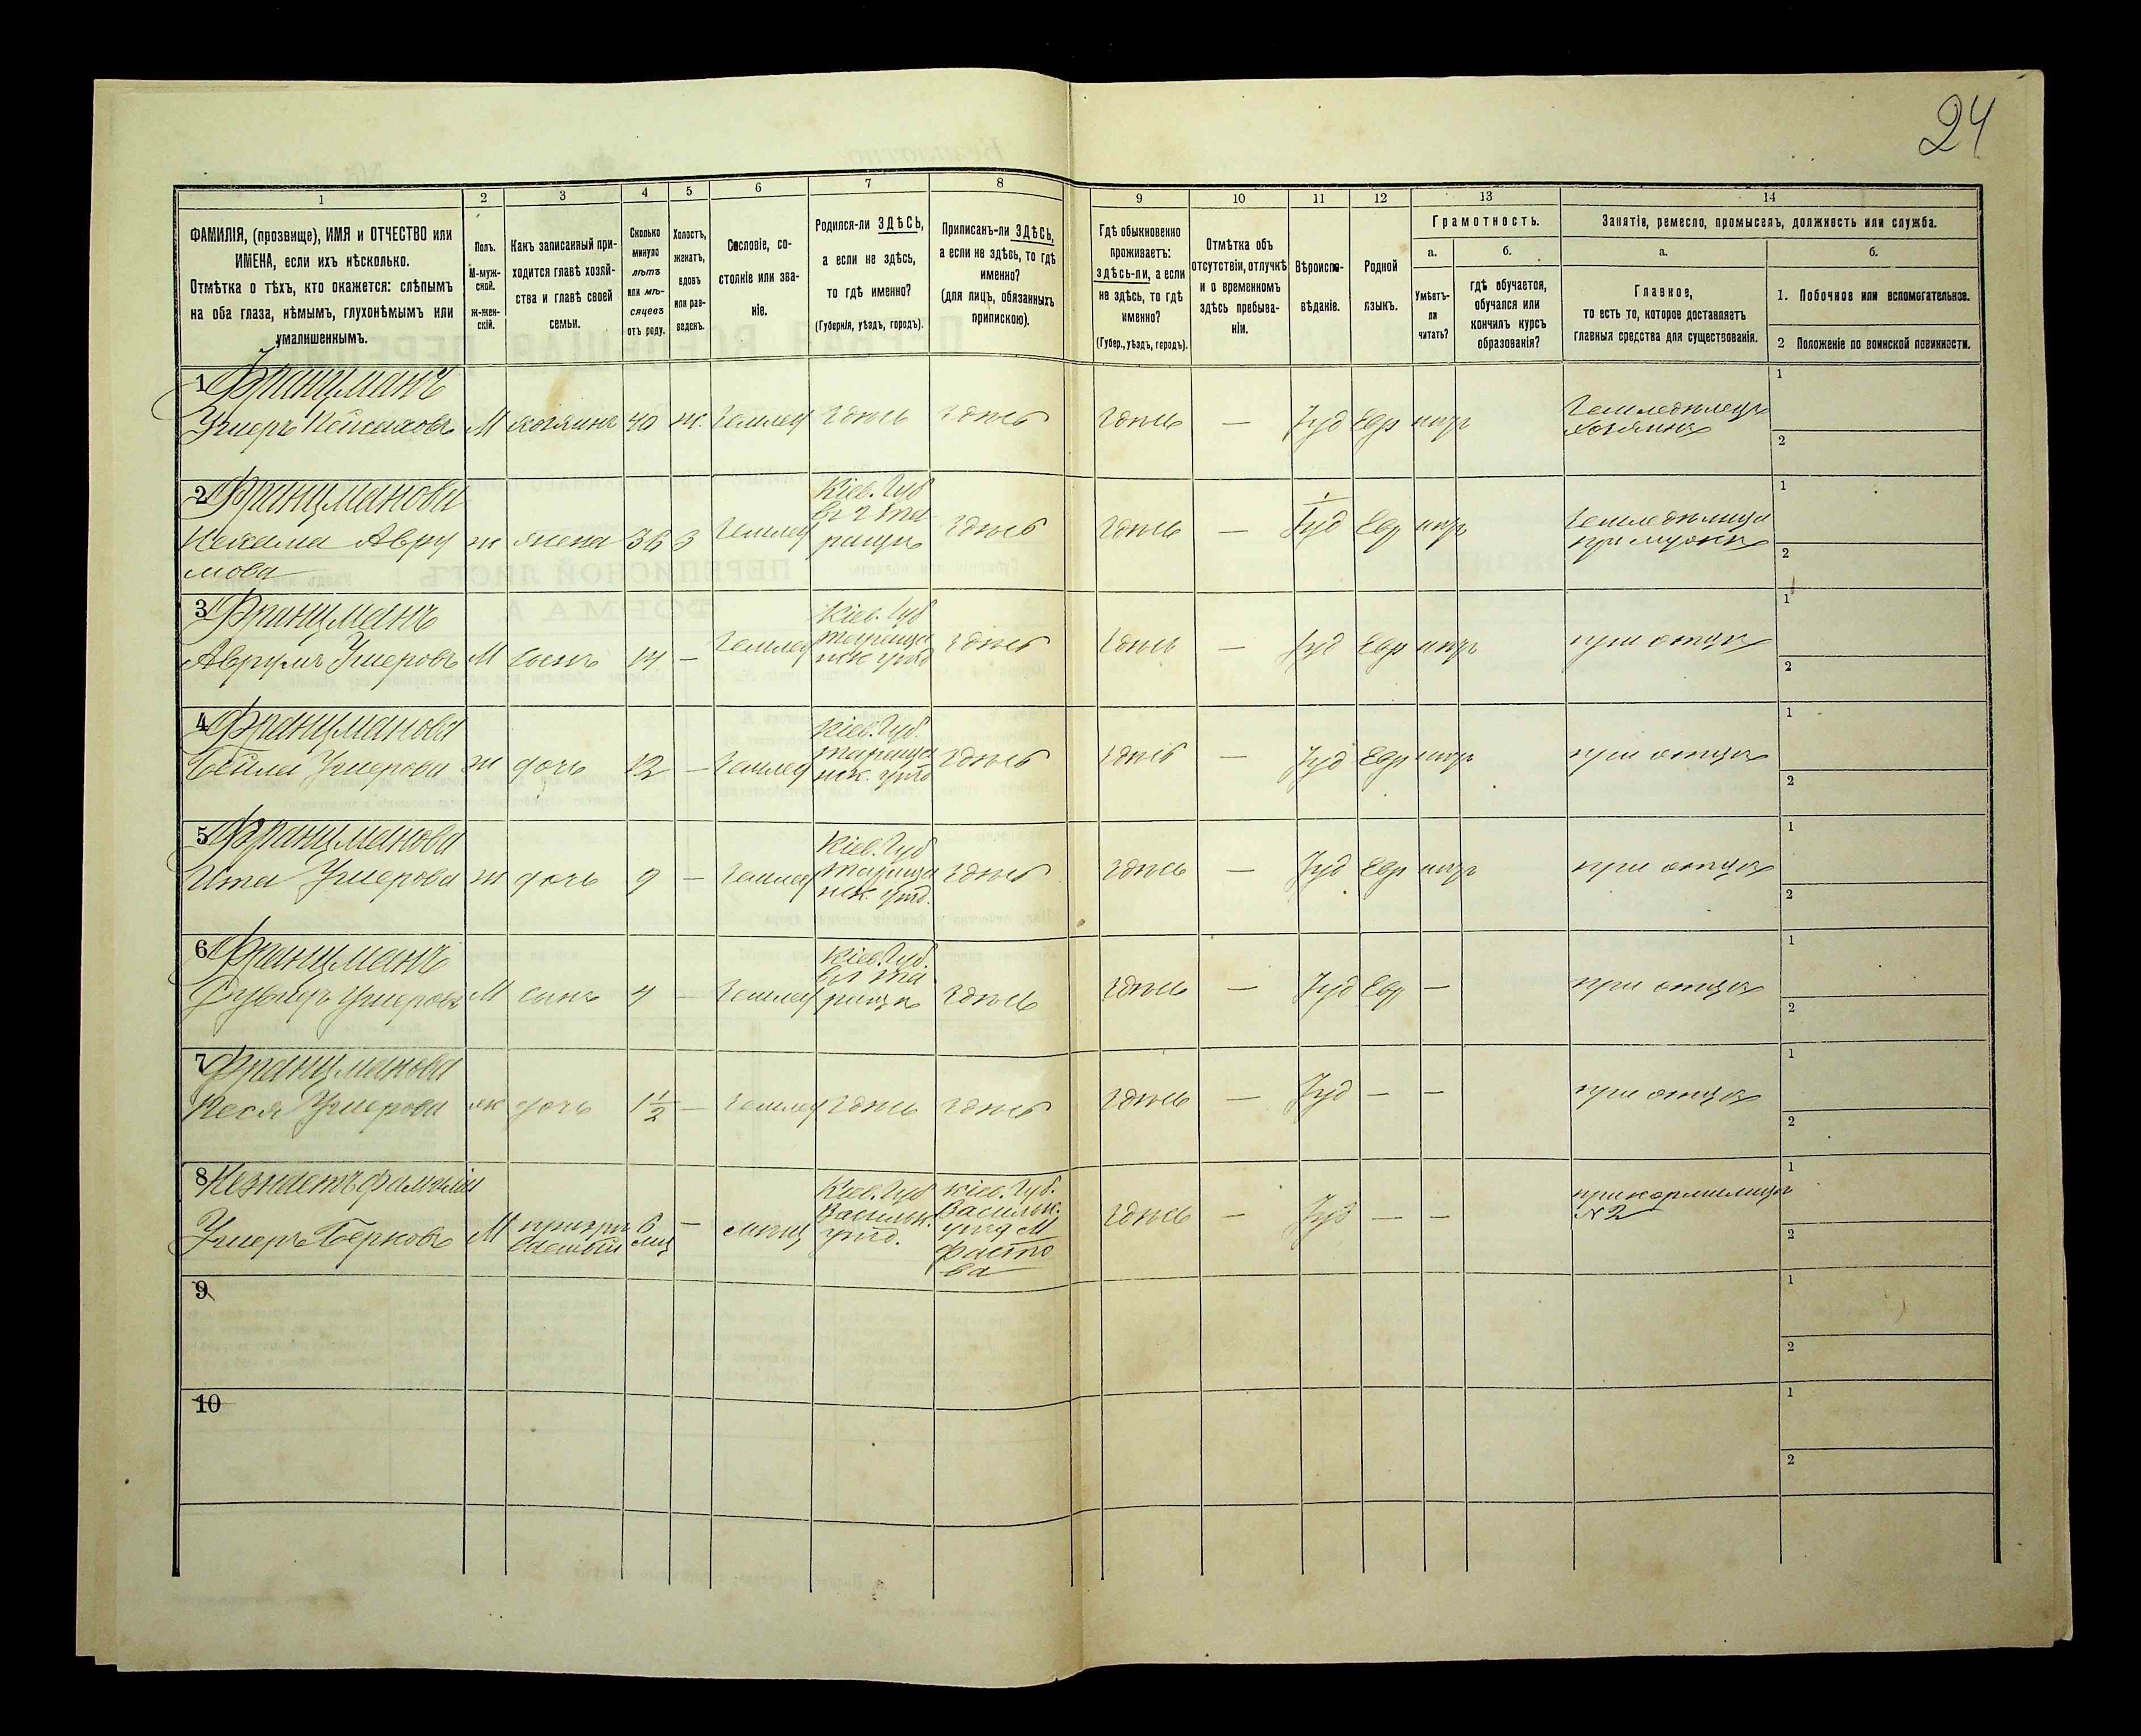 24
1
2
3
4
5
6
7
8
9
10
11
12
13
14
ФАМИЛІЯ, (прозвище), ИМЯ и ОТЧЕСТВО или
ИМЕНА, если ихъ нѣсколько.
Отмѣтка о тѣхъ, кто окажется: слѣпымъ
на оба глаза, нѣмымъ, глухонѣмымъ или
умалишеннымъ.
Полъ.
М-муж-
ской.
ж-жен-
скій.
Какъ записанный при-
ходится главѣ хозяй-
ства и главѣ своей
семьи.
Сколько
минуло
лѣтъ
или мѣ-
сяцевъ
отъ роду.
Холостъ,
женатъ,
вдовъ
или раз-
веденъ.
Сословіе, со-
стояніе или зва-
ніе.
Родился-ли ЗДѢСЬ,
а если не здѣсь,
то гдѣ именно?
(Губернія, уѣздъ, городъ).
Приписанъ-ли ЗДѢСЬ,
а если не здѣсь, то гдѣ
именно?
(для лицъ, обязанныхъ
припискою).
Гдѣ обыкновенно
проживаетъ:
здѣсь-ли, а если
не здѣсь, то гдѣ
именно?
(Губер., уѣздъ, городъ).
Отмѣтка объ
отсутствіи, отлучкѣ
и о временномъ
здѣсь пребыва-
ніи.
Вѣроиспо-
вѣданіе.
Родной
языкъ.
Грамотность.
а.
б.
Умѣетъ-
ли
читать?
гдѣ обучается,
обучался или
кончилъ курсъ
образованія?
Занятія, ремесло, промыселъ, должность или служба.
а.
б.
Главное,
то есть то, которое доставляетъ
главныя средства для существованія.
1. Побочное или вспомогательное.
2 Положеніе по воинской повинности.
1 Францманъ
Ушеръ М хозяинъ 40 ж. землед здѣсь здѣсь здѣсь — Іуд Евр Земледѣлецъ
хозяинъ
1
2
2 Францманова
Нехама Авру
мова
ж жена 36 З землед
Кіев. Губ
въ г Та
ращѣ
здѣсь здѣсь — Іуд Евр Земледѣлица
при мужѣ
1
2
3 Францманъ
Аврумъ Ушеровъ М сынъ 14 — землед
Кіев. Губ
Тараща
нск уѣзд
здѣсь здѣсь — Іуд Евр при отцѣ
1
2
4 Францманова
Бейла Ушерова ж дочь 12 — землед
Кіев. Губ.
Тараща
нск. уѣзд
здѣсь здѣсь — Іуд Евр при отцѣ
1
2
5 Францманова
Ита Ушерова ж дочь 9 — землед
Кіев. Губ
Тараща
нск. уѣзд.
здѣсь здѣсь — Іуд Евр при отцѣ
1
2
6 Францманъ
Ушеровъ М сынъ 4 — землед
Кіев. Губ.
въ г Та
ращѣ
здѣсь здѣсь — Іуд Евр — при отцѣ
1
2
7 Францманова
Песя Ушерова ж дочь 1 1/2 — землед здѣсь здѣсь здѣсь — Іуд — — при отцѣ
1
2
8 Незнаетъ фамиліи
Ушеръ Берковъ М призрѣ
ваемый 6
мц — мѣщ
Кіев. Губ
Васильк.
уѣзд.
Кіев. Губ.
Васильк.
уѣзд М
Фасто
ва
здѣсь — Іуд — — при кормилицѣ
№ 2
1
2
9
1
2
10
1
2